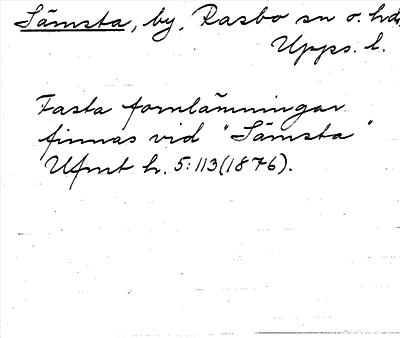 Sämsta, by, Rasbo sn o. hd,
Upps. l.
Fasta fornlämningar
finnas vid "Sämsta"
Ufmt h. 5:113(1876).